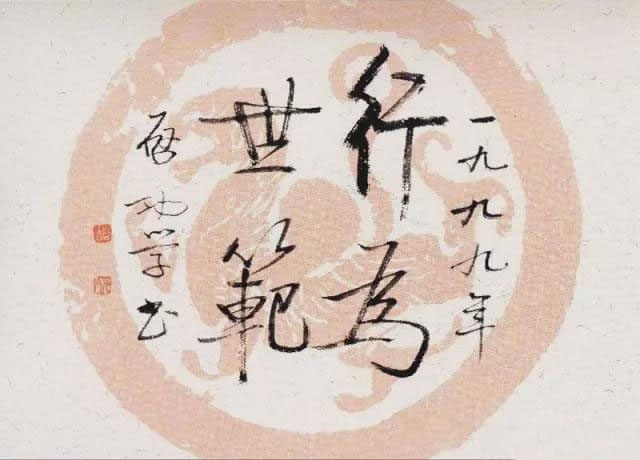 一九九九年
行為
世範
启功学书